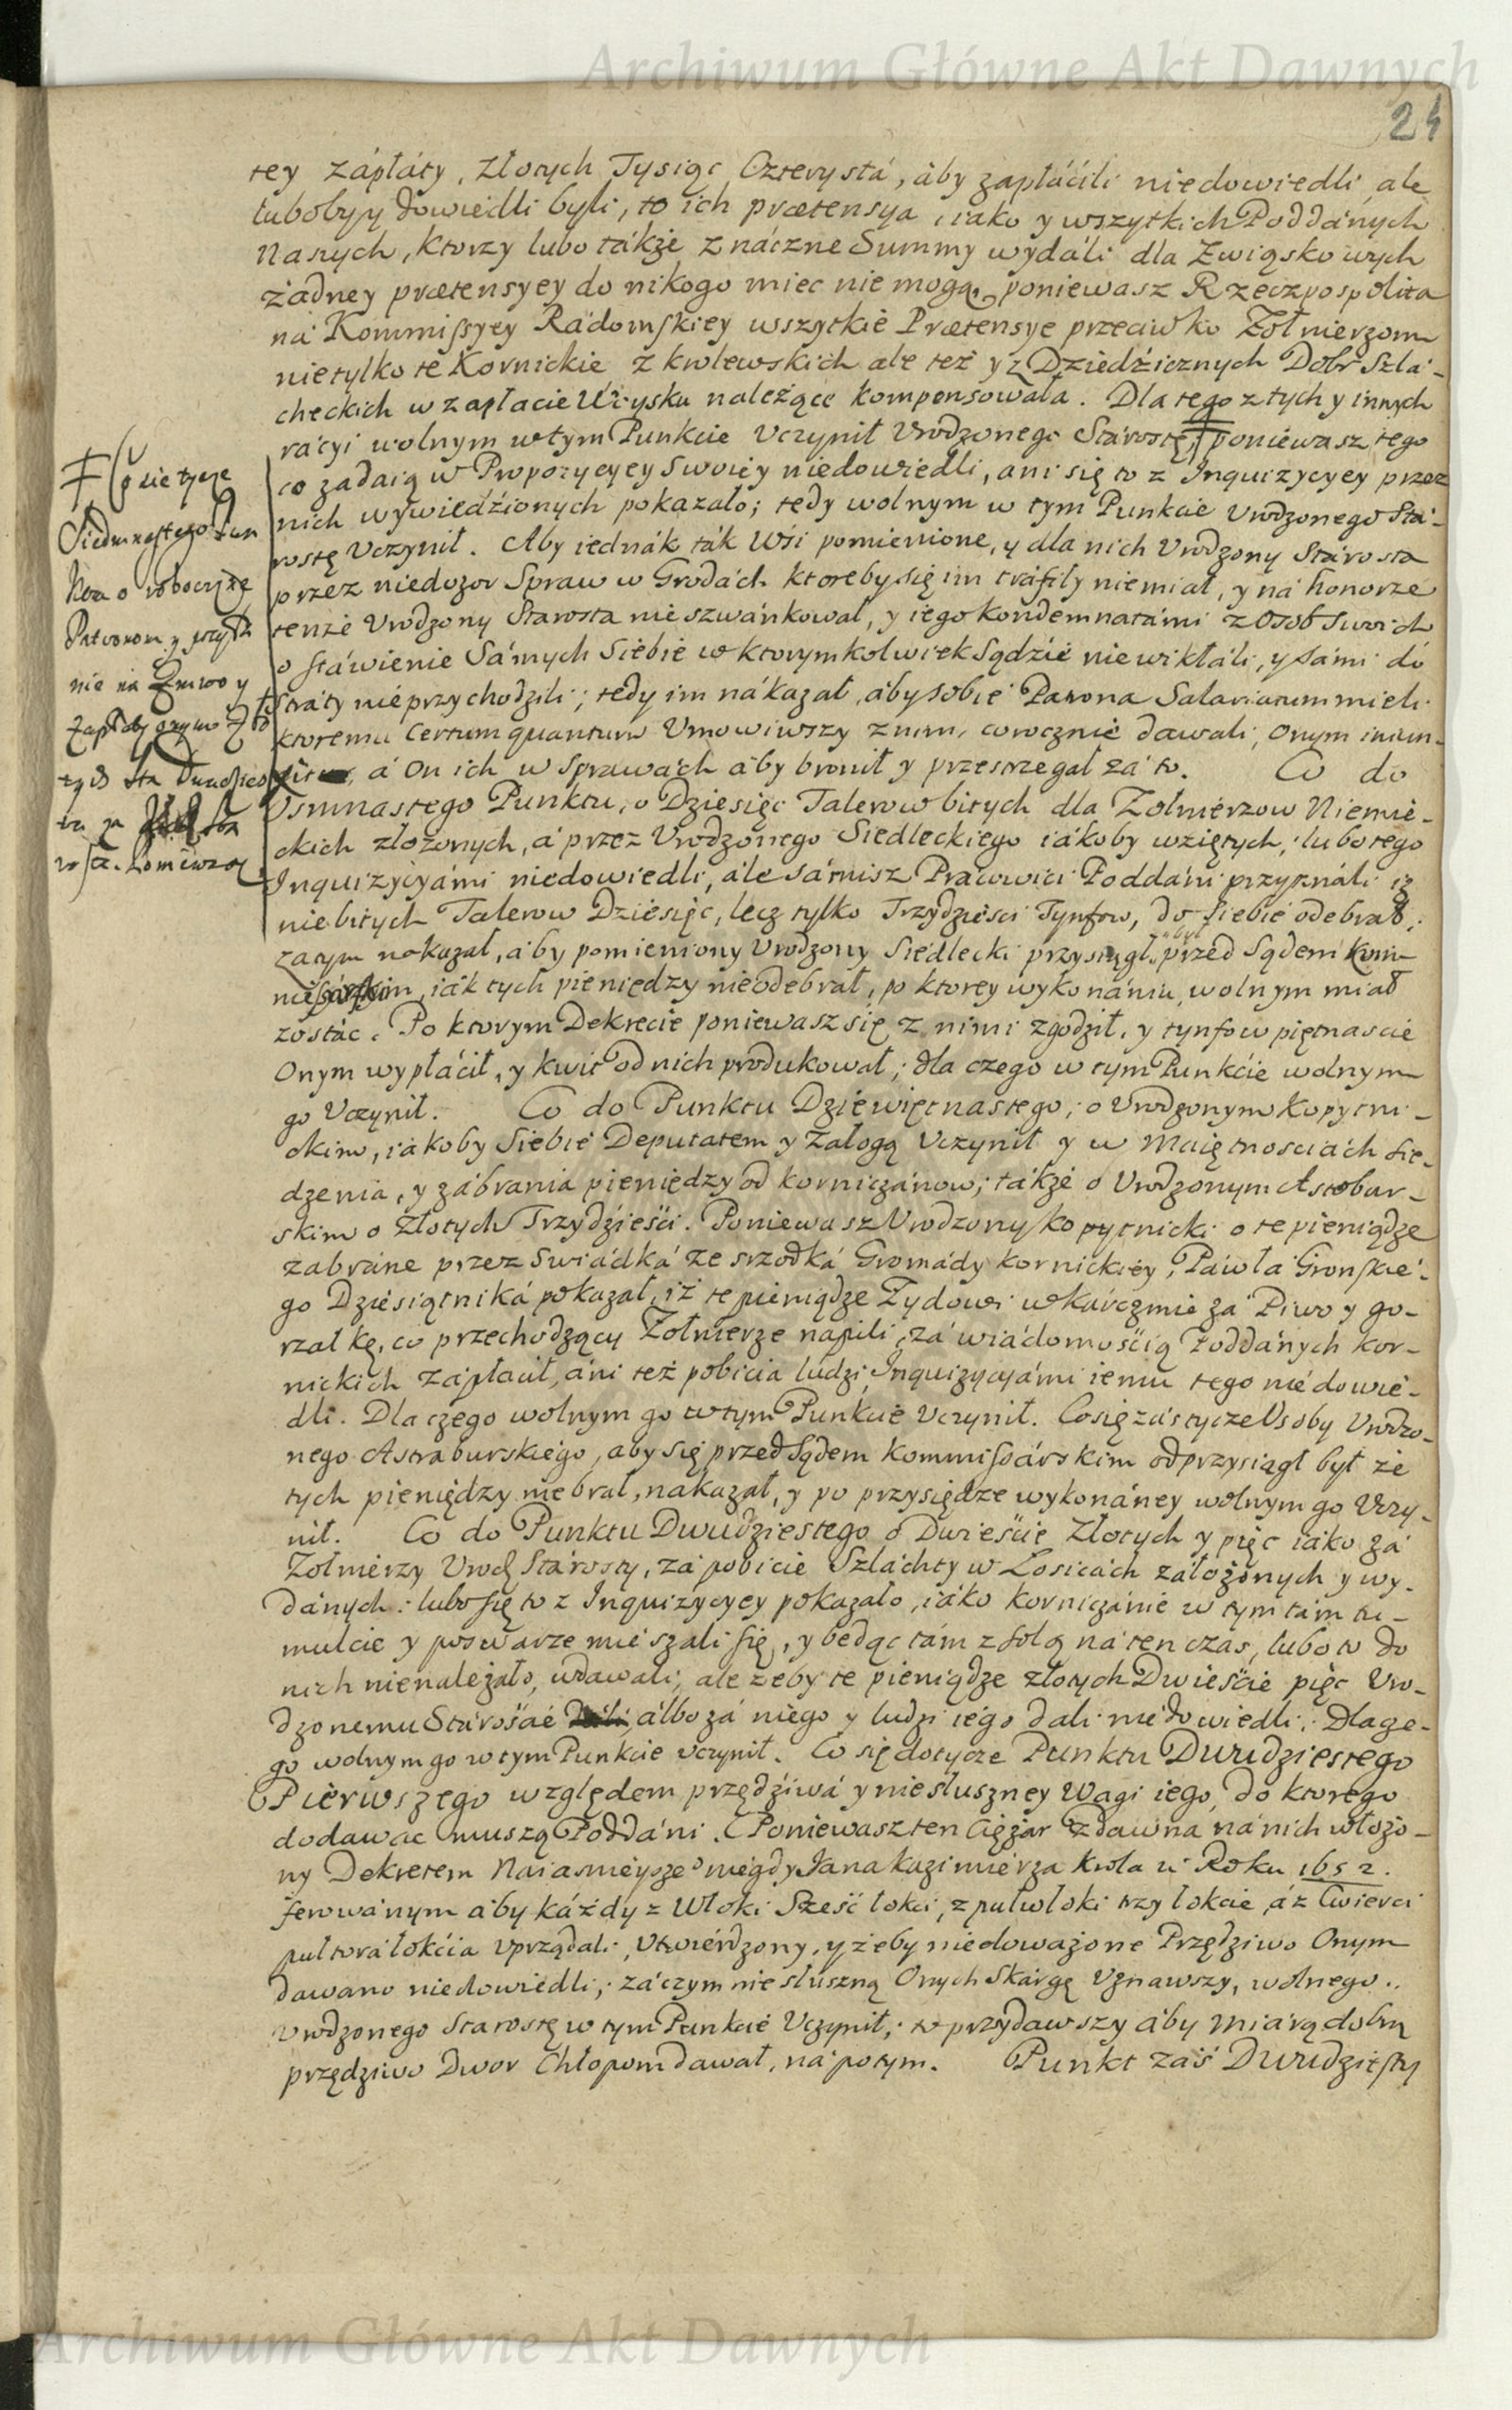 Archiwum Główne Akt Dawnych
24
tey zápłáty, złotych Tysiąc Czterystá, áby zapłáćili niedowiedli, ale
luboby y dowiedli byli, to ich prætensya, iako y wszytkich Poddánych
Naszych, ktorzy lubo tákże znáczne Summy wydáli dla Zwiąskowych
żadney prætensyey do nikogo miec nie mogą, poniewasz Rzeczpospolita
ná Kommissyey Rádomskiey wszytkie Prætensye przeciwko Żołnierzom
nie tylko te Kornickie z krolewskich ale też y z Dziedźicznych Dobr Szla-
checkich w zapłacie Ućysku należące kompensowała. Dla tego z tych y innych
rácyi wolnym w tym Punkcie Vczynił Vrodzonego Stárostę, ǂ poniewasz tego
co zadaią w Propozycyey Swoiey niedowiedli, ani się to z Inquizycyey przez
nich wywiedźionych pokazało; tedy wolnym w tym Punkcie Vrodzonego Stá-
rostę Vczynił. Aby iednák ták Wśi pomienione, y dla nich Vrodzony Stárosta
przez niedozor Spraw w Grodách ktoreby się im tráfiły niemiał, y ná honorze
tenże Vrodzony Starosta nie szwánkował, y iego kondemnatámi z Osob Swoich
o stáwienie Sámych Siebie w ktorymkolwiek Sądźie niewikłáli, y sámi do
straty nie przychodzili; tedy im nákazał, áby sobie Patrona Salariatum mieli
ktoremu Certum quantum Vmowiwszy z nim, corocznie dawali, Onym inium-
á On ich w Sprawách áby bronił y przestrzegał zá to. Co do
Osmnastego Punktu, o Dziesięc Talerow bitych dla Żołnierzow Niemie-
ckich złożonych, á przez Vrodzonego Siedleckiego iákoby wziętych; lubo tego
Inquizycyámi niedowiedli, ále sámisz Pracowici Poddáni przyználi iż
nie bitych Talerow Dziesięc, lecz tylko Trzydzieści Tynfow, do siebie odebrał,
zatym nakazał, áby pomieniony Vrodzony Siedlecki przysiągł był przed Sądem Kom-
missárskim, iák tych pieniędzy nieodebrał, po ktorey wykonániu, wolnym miał
zostác. Po ktorym Dekrecie poniewasz się z nimi zgodził, y tynfow piętnascie
Onym wypłáćił, y kwit od nich produkował; dla czego w tym Punkćie wolnym
go Vczynił. Co do Punktu Dziewiętnastego; o Vrodzonym Kopytni-
ckim, iakoby Siebie Deputatem y Załogą Vczynił y w Maiętnosciách sie-
dzenia, y zábrania pieniędzy od korniczánow; tákże o Vrodzonym Astobur-
skim o złotych Trzydźieśći. Poniewasz Vrodzony Kopytnicki o te pieniądze
zabráne przez Swiádká ze srzodká Gromády kornickiey, Páwła Gronskie-
go Dziesiątniká pokazał, iż te pieniądze Zydowi w kárczmie za Piwo y go-
rzałkę, co przechodzący Żołnierze napili, zá wiádomośćią Poddánych kor-
nickich zápłacił, áni też pobicia ludzi, Inquizycyámi iemu tego niedowie-
dli. Dla czego wolnym go w tym Punkcie Vczynił. Co się záś tycze Osoby Vrodzo-
nego Astraburskiego, aby się przed Sądem Kommissárskim odprzysiągł był że
tych pieniędzy nie brał, nakazał, y po przysiędze wykonáney wolnym go Vczy-
nił. Co do Punktu Dwudziestego o Dwieśćie złotych y pięc iáko zá
Żołnierzy Vrodz Stárosty, zá pobicie Szláchty w Łosicách założonych y wy-
dánych: lubo się to z Inquizycyey pokazało, iáko korniczánie w tym tám tu-
mulcie y poswarze mieszali się, y będąc tám z solą ná ten czas, lubo to do
nich nienależało, wdawali, ale żeby te pieniądze złotych Dwieśćie pięc Vro-
dzonemu Stárośćie álbo zá niego y ludzi iego dali niedowiedli. Dla cze-
go wolnym go w tym Punkcie Vczynił. Co się dotycze Punktu Dwudziestego
Pierwszego względem przędźiwá y niesłuszney Wagi iego, do ktorego
dodawac muszą Poddáni. Poniewasz ten Ciężar zdawna ná nich włożo-
ny Dekretem Naiasnieyszego niegdy Jana Kazimierza krola w Roku 1652.
ferowánym áby káżdy z Włoki Sześć łokci, z pułwłoki trzy łokcie, á z Ćwierci
pułtorá łokćia vprządali, vtwierdzony, y żeby niedoważone Przędziwo Onym
dawano niedowiedli; záczym niesłuszną Onych Skárgę Vznawszy, wolnego
Vrodzonego Starostę w tym Punkcie Vczynił; to przydawszy áby miárą dobrą
przędziwo Dwor Chłopom dawał, ná potym. Punkt záś Dwudziesty
ǂ Co sie tycze
Siedmnastego Pun
ktu o robociznę
nie na Zniwo y
Archiwum Główne Akt Dawnych